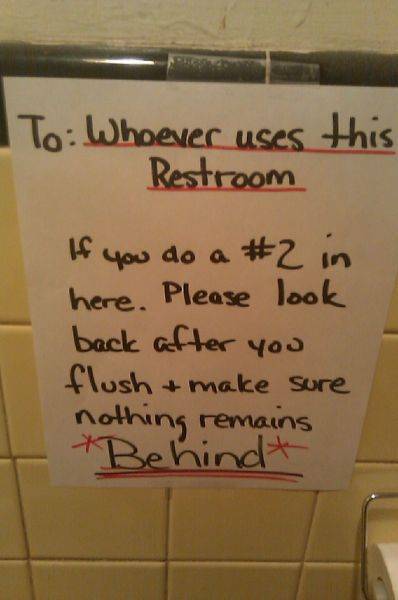 To: Whoever uses this
Restroom
If you do a #2 in
here. Please look
back after you
flush + make sure
nothing remains
*Behind*